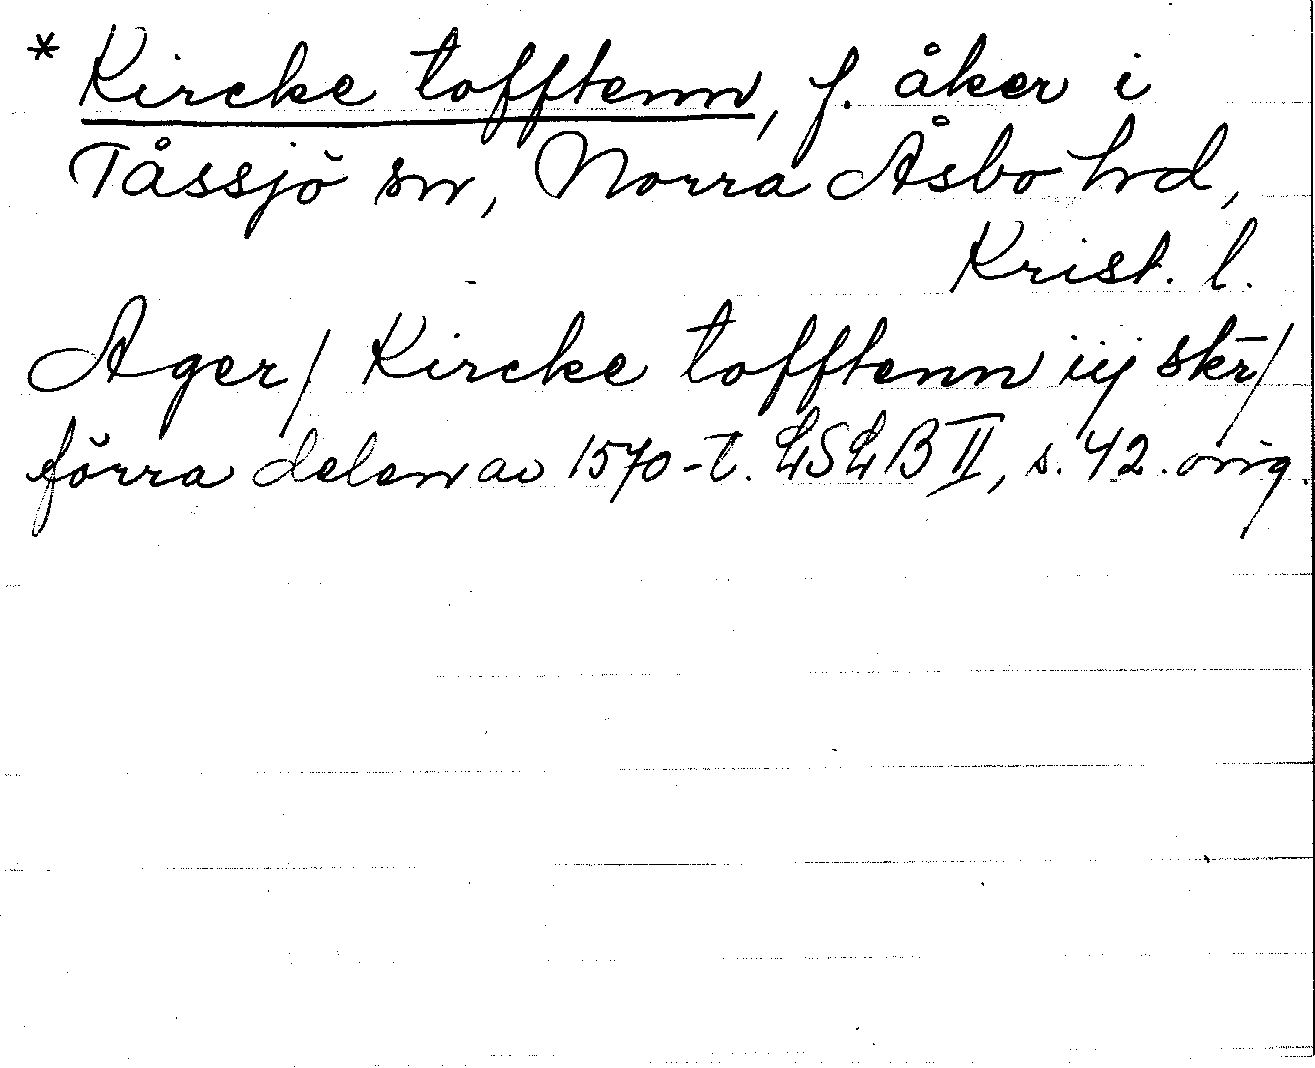 * Kircke tofftenn, f. åker i
Tåssjö sn, Norra Åsbo hd,
Krist. l.
Ager/ Kircke tofftenn iij skr̄/
förra delen av 1570-t. LSLB II, s. 42. orig.